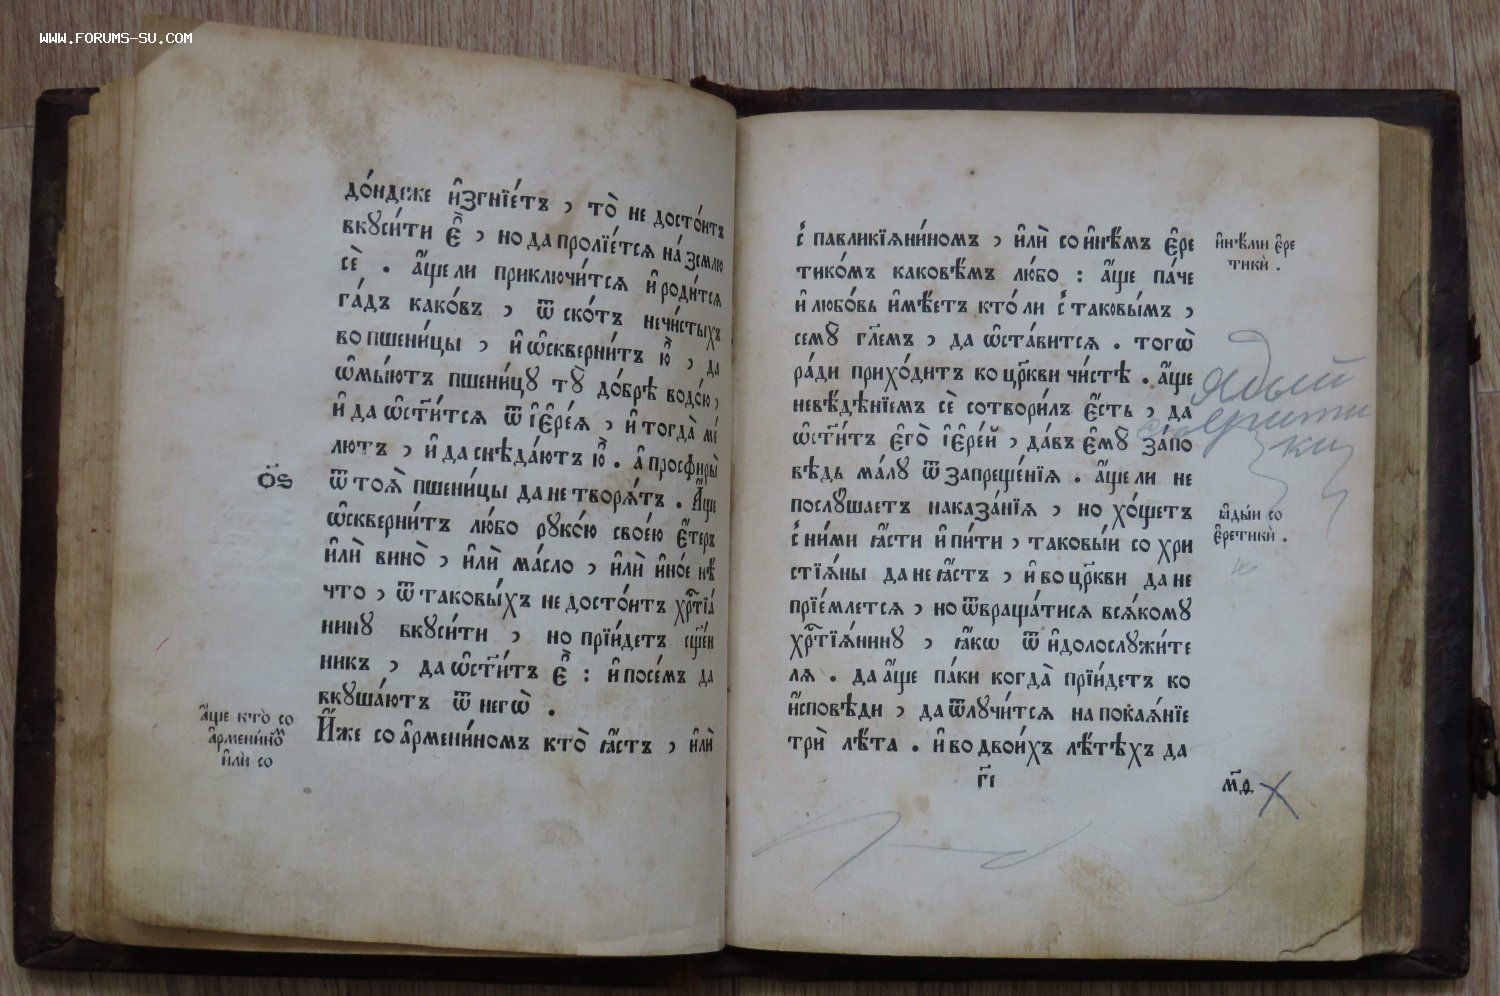 WWW.FORUMS-SU.COM
до́ндеже и҆згнїе́тъ , то̀ не досто́итъ
вкꙋси́ти є҆̀ , но да пролїе́тсѧ на́ землю
сѐ . а҆́ще ли приключи́тсѧ и҆ роди́тсѧ
га́дъ како́въ , ѿ ско́тъ нечи́стыхъ
во пшени́цы , и҆ ѡ҆скверни́тъ ю҆̀ , да
ѡ҆мы́ютъ пшени́цꙋ тꙋ̀ до́брѣ водо́ю ,
и҆ да ѡ҆ст҃и́тсѧ ѿ і҆є҆ре́ѧ , и҆ тогда̀ ме́
лютъ , и҆ да снѣда́ютъ ю҆̀ . а҆ просфиры̀
ѿ тоѧ̀ пшени́цы да не творѧ́тъ . А҆́ще
ѡ҆скверни́тъ лю́бо рꙋко́ю свое́ю є҆́теръ
и҆лѝ вино̀ , и҆лѝ ма́сло , и҆лѝ и҆но́е нѣ́
что , ѿ таковы́хъ не досто́итъ хрⷭ҇тїѧ́
нинꙋ вкꙋси́ти , но прїи́детъ сщ҃е́н
никъ , да ѡ҆ст҃и́тъ є҆̀ : и҆ посе́мъ да
вкꙋша́ютъ ѿ негѡ̀ .
И҆́же со а҆рмени́номъ кто̀ ꙗ҆́стъ , и҆лѝ
о҃ѕ
а҆́ще кто̀ со
а҆рмени́но
и҆лѝ со
с̾ павликїѧни́номъ , и҆лѝ со и҆нѣ́мъ є҆ре
тико́мъ каковѣ́мъ лю́бо : а҆́ще па́че
и҆ любо́вь и҆мѣ́етъ кто ли с̾ таковы́мъ ,
семꙋ̀ гл҃емъ , да ѡ҆ста́витсѧ . тогѡ̀
ра́ди прихо́дитъ ко цр҃кви чи́стѣ . а҆́ще
невѣ́дѣнїемъ сѐ сотвори́лъ є҆́сть , да
ѡ҆ст҃и́тъ є҆го̀ і҆є҆ре́й , да́въ є҆мꙋ̀ за́по
вѣдь ма́лꙋ ѿ запреще́нїѧ . а҆́ще ли не
послꙋ́шаетъ наказа́нїѧ , но хо́щетъ
с̾ ни́ми ꙗ҆́сти и҆ пи́ти , таковы́и со хри
стїѧ́ны да не ꙗ҆́стъ , и҆ во цр҃кви да не
прїе́млетсѧ , но ѿвраща́тисѧ всѧ́комꙋ
хрⷭ҇тїѧ́нинꙋ , ꙗ҆́кѡ ѿ и҆долослꙋжи́те
лѧ . да а҆́ще па́ки когда̀ прїи́детъ ко
и҆́сповѣди , да ѿлꙋчи́тсѧ на покаѧ́нїе
трѝ лѣ́та . и҆ во двои́хъ лѣ́тѣхъ да
и҆нѣ́ми є҆ре
тикѝ .
Ядый
еритики
ꙗ҆ды́и со
є҆ретикѝ .
г҃і
м҃д